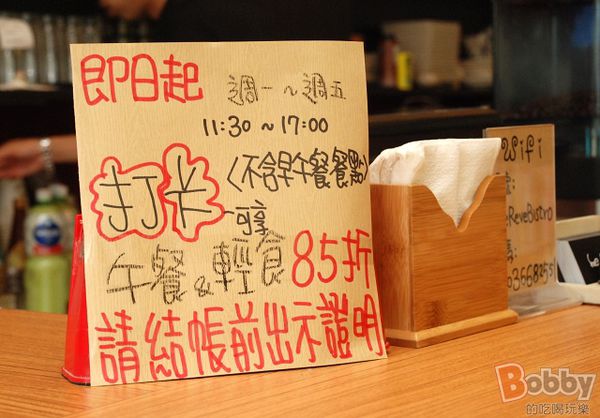 即日起 週一~週五
11:30~17:00
打卡
(不含早午餐餐點)
可享
午餐&輕食85折
請結帳前出示證明
Wifi
ReveBistro
Bobby
的吃喝玩樂